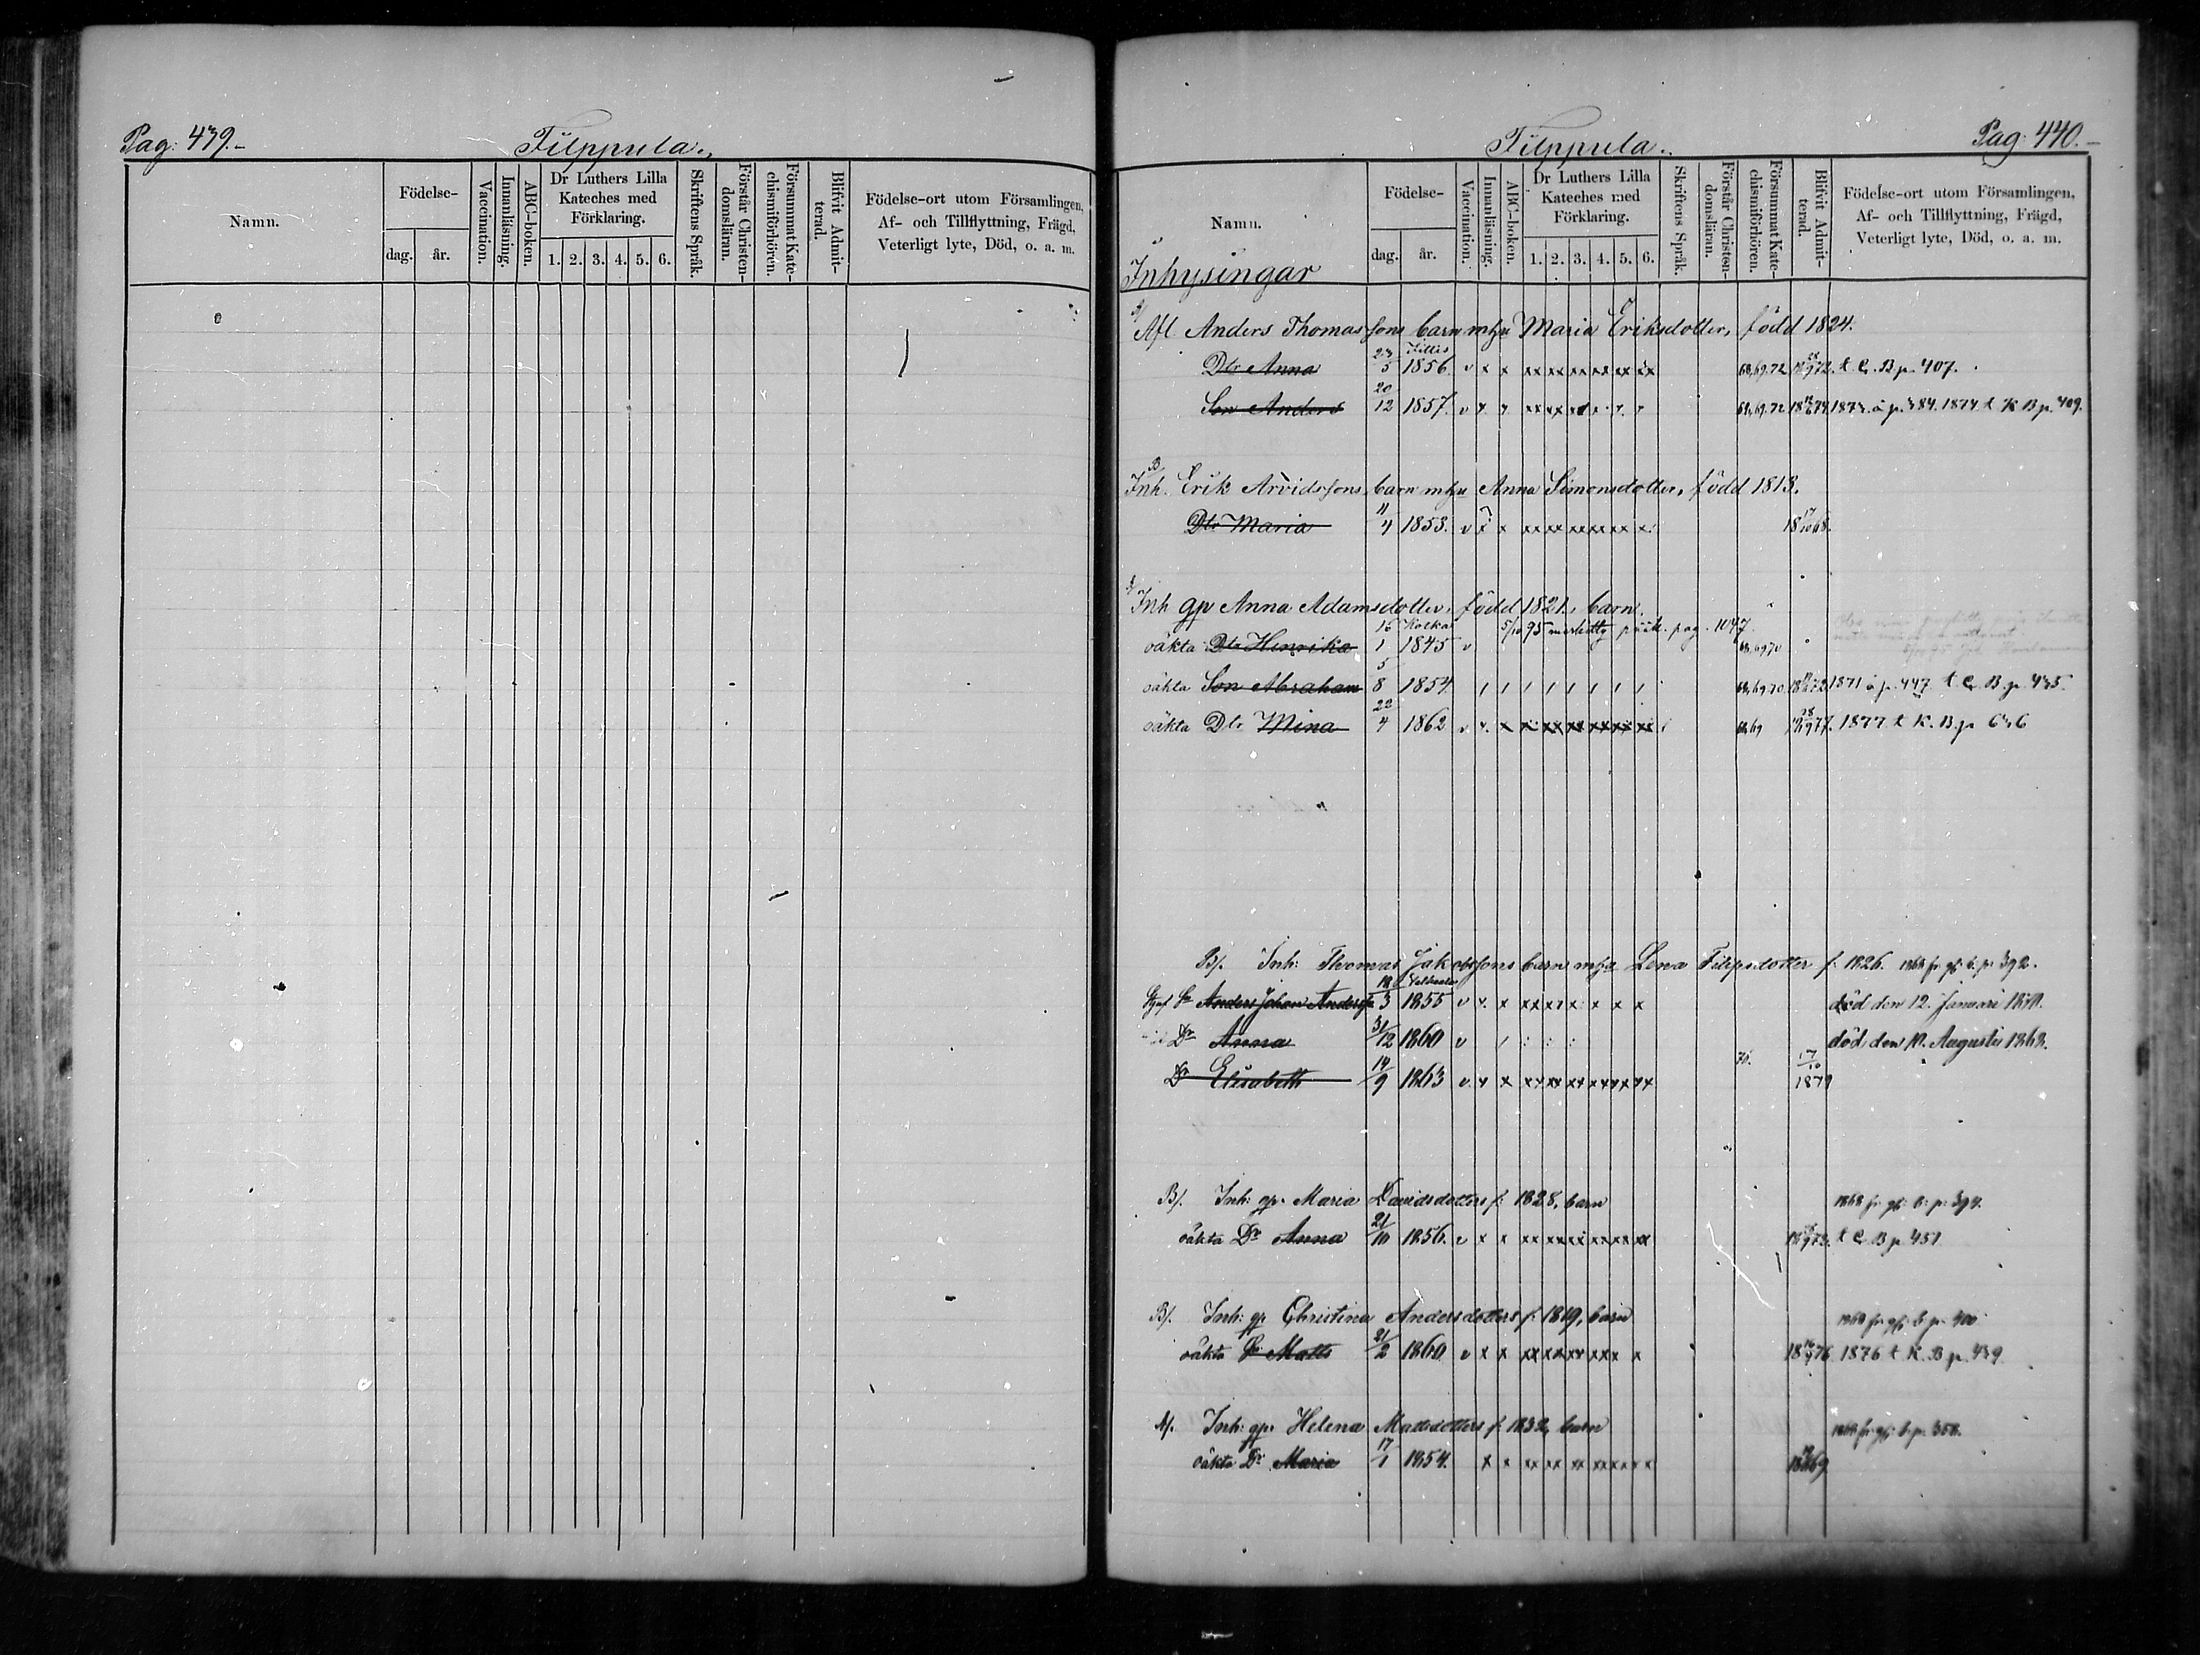 Pag: 439.
Filppula.
Namn.
Födelse-
dag. år.
Vaccination.
Innanläsning.
ABC-boken.
Dr Luthers Lilla Kateches med Förklaring.
1. 2. 3. 4. 5. 6.
Skriftens Språk.
Förstår Christen-domsläran.
Försummat Kate-chismiförhören.
Blifvit Admit-terad.
Födelse-ort utom Församlingen,
Af- och Tillflyttning, Frägd,
Veterligt lyte, Död, o. a. m.
Pag: 440.
Filppula.
Namn.
Inhysingar
Födelse-
dag. år.
Vaccination.
Innanläsning.
ABC-boken.
Dr Luthers Lilla Kateches med Förklaring.
1. 2. 3. 4. 5. 6.
Skriftens Språk.
Förstår Christen-domsläran.
Försummat Kate-chismiförhören.
Blifvit Admit-terad.
Födelse-ort utom Församlingen,
Af- och Tillflyttning, Frägd,
Veterligt lyte, Död, o. a. m.
Afl Anders Thomassons barn m hu Maria Eriksdotter, född 1824.
Dtr Anna 23/5 1856. v x x xx xx xx xx xx xx 68,69,72 t. C. B p. 407.
Son Anders 20/12 1857. v 68,69,72 1873. å p. 384. 1874 t K B p. 409.
B
Inh. Erik Arvidssons barn m hu Anna Simonsdotter, född 1813.
Dtr Maria 11/4 1853. v x x xx xx xx xx x x
Inh gp Anna Adamsdotter, född 1821. barn.
5/10 95 pag. 1047
oäkta Dtr Henrika 16/1 1845 v 68,69,70
oäkta Son Abraham 5/8 1854 68,69,70 1871 å p. 447 t C. B. p. 435.
oäkta Dtr Mina 22/4 1862 68,69 1877 t K. B. p 636
B/. Inh: Thomas Jakobssons barn m hu Lena Filipsdotter f. 1826. 1868 fr. gl. b. p. 392.
Sn Anders Johan Andersson 18/3 1855 v x x xx xx x x x x död den 12. Januari 1870.
Dr Anna 31/12 1860 v död den 10. Augusti 1868.
Dr Elisabeth 14/9 1863 v x x xx xx xx xx xx xx 76. 17/10 1879
B/. Inh: gp. Maria Davidsdotters f. 1828, barn 1868 fr. gl. b. p. 394.
oäkta Dr Anna 21/10 1856. v x x xx xx xx xx xx xx t C. B p. 451
B/. Inh: gp Christina Andersdotters f. 1819, barn 1868 fr. gl. b. p. 400
oäkta Sn Matts 21/2 1860 v x x xx xx xx xx x x 1876 t K. B p. 439.
A/. Inh: gp. Helena Mattsdotters f. 1832, barn 1868 fr. gl. b. p. 358.
oäkta Dr Maria 17/1 1854. x x xx xx xx xx x x